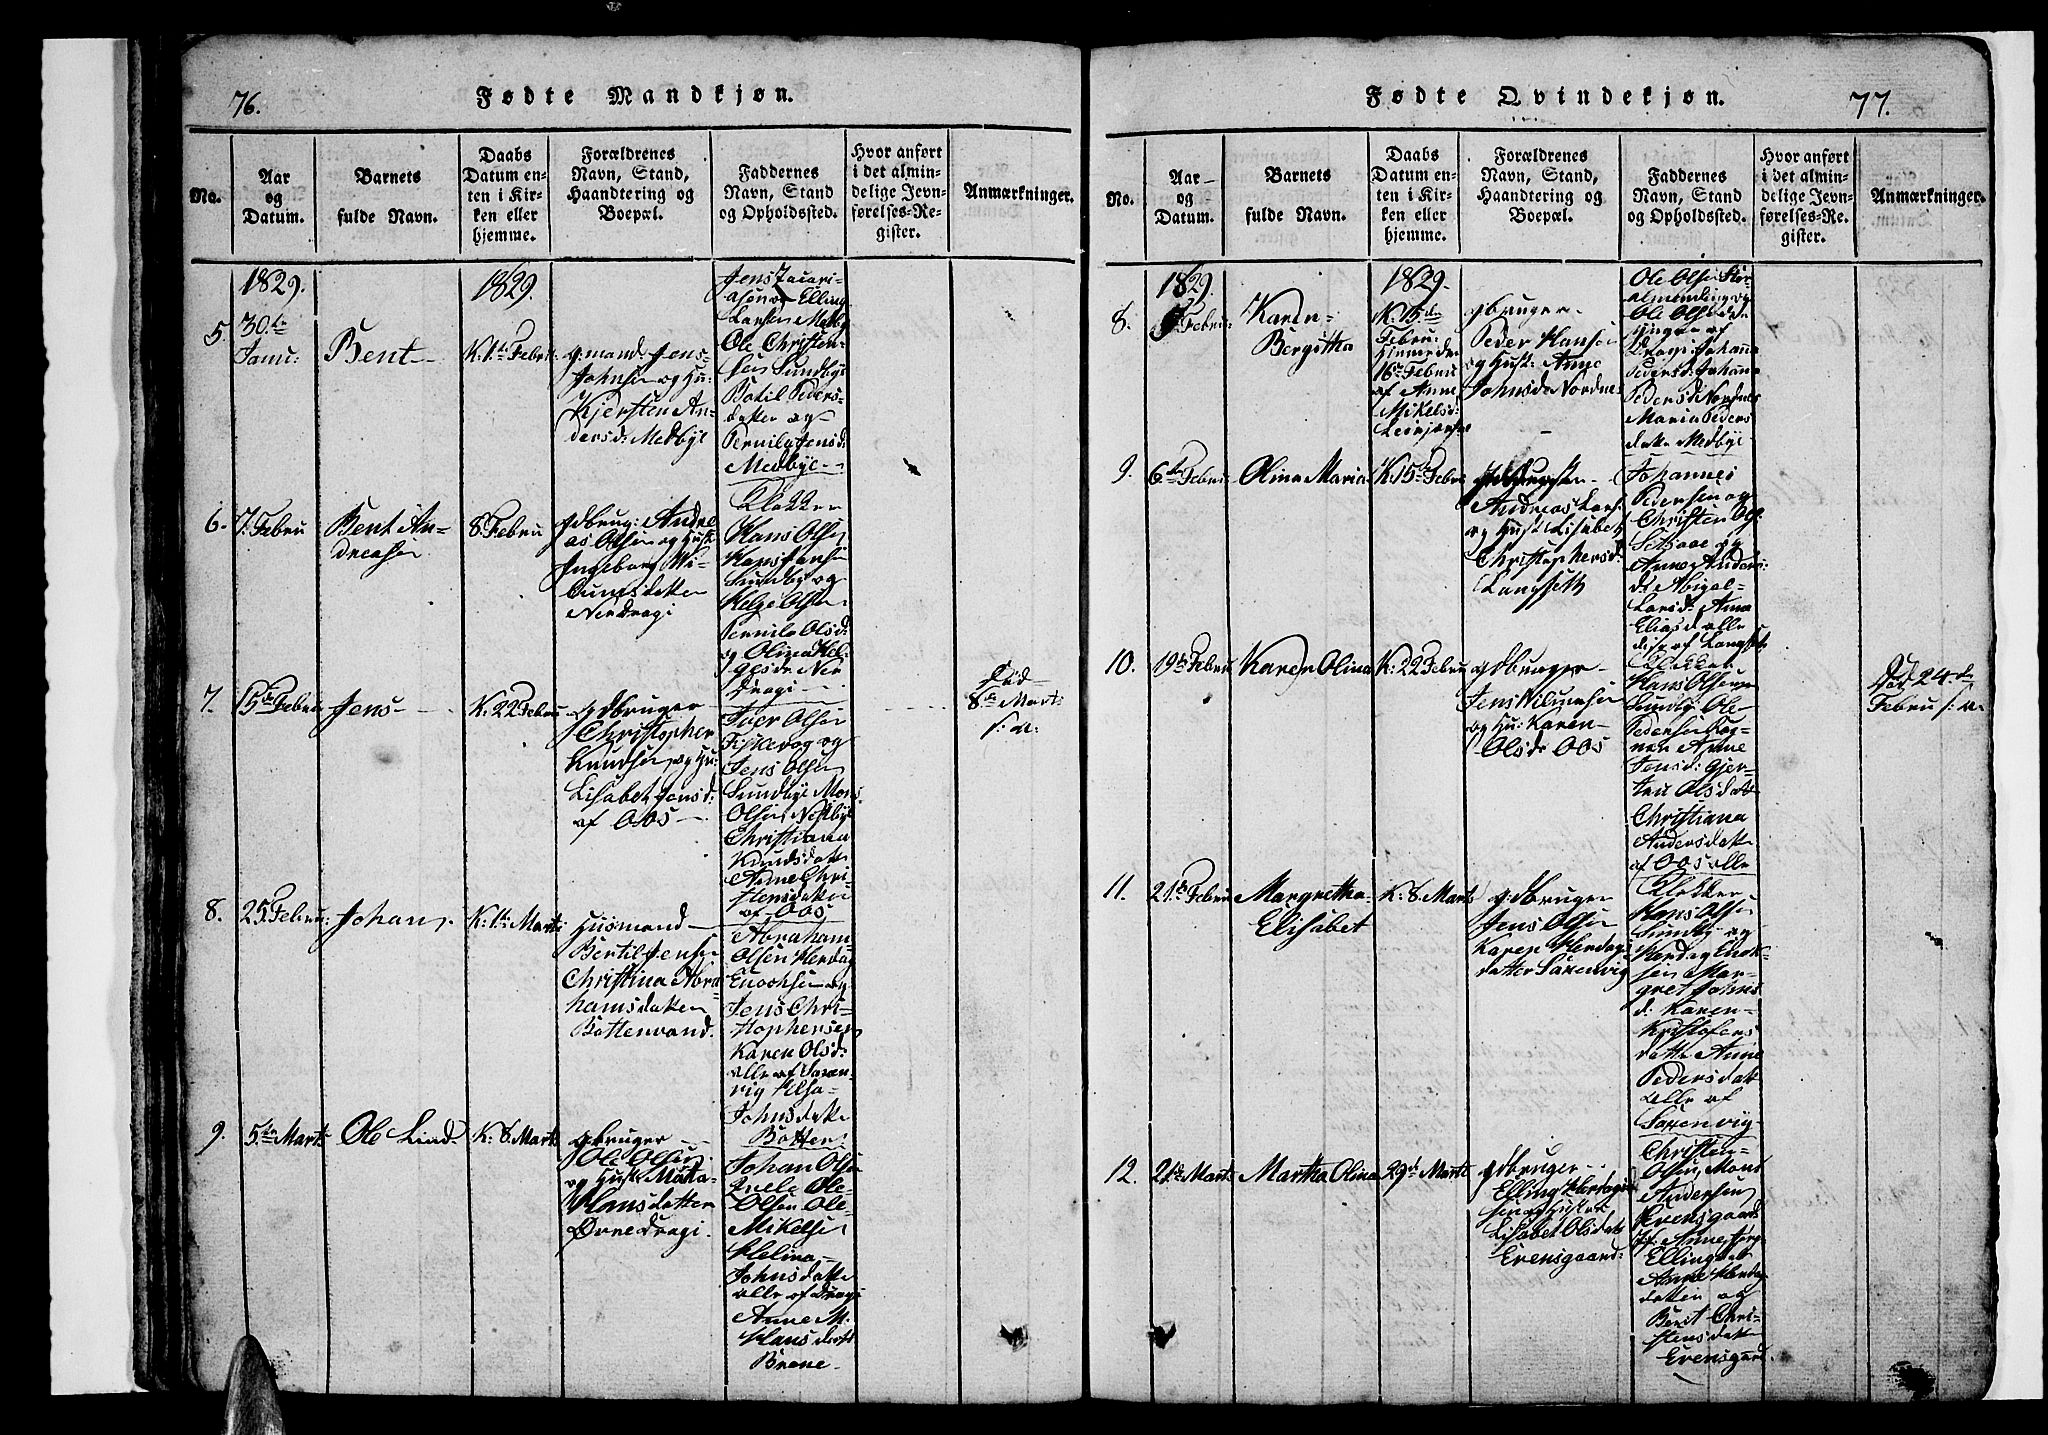 76.
Fødte Mandkjøn.
No.
Aar
og
Datum.
Barnets
fulde Navn.
Daabs
Datum en-
ten i Kir-
ken eller
hjemme.
Forældrenes
Navn, Stand,
Haandtering og
Boepæl.
Faddernes
Navn, Stand
og Opholdssted.
Hvor anført
i det almin-
delige Jevn-
førelses-Re-
gister.
Anmærkninger.
1829.
5.
30.te
Janu:
Bent
1829.
K: 1.te Febru:
gmand Jens
Johnsen og Hu:
Kjersten An-
dersd: Medbye
Jens Zacari-
asen og Elling
Larsen Medby
Ole Christen-
sen Sundbye
Botil Peders-
datter og
Pernila Jensd:
Medbye
6.
7. Febru
Bent An-
dreasen
8 Febru
gdbrug: Andre
as Olsen og Hust
Ingeborg
datter
Nerdragi
Klokker
Hans Olsen
Hans Hansen
Sundby og
Helge Olsen
Pernila Olsd:
og Olina Hel-
gesdr Ner
Dragi
7.
15de Febru
Jens
K: 22 Febru
gdbruger
Christopher
Knudsen og Hu:
Lisabet Jensd:
af Oos
Iver Olsen
Fiskevog og
Jens Olsen
Sundbye Mons
Olsen Nedbye
Christiana
Knudsdatt
Anne Chri-
stensdatter
af Oos
Død
8de Marts
s: a:
8.
25 Febru:
Johan
K: 1te Marts
Husmand
Bertil Jensen
Christina Abra
hamsdatter
Bottenvand.
Abraham
Olsen Herdag
Enochsen og
Jens Chri-
stophersen
Karen Olsd:
alle af Saxen-
vig Elsa
Johnsdatte
Botten
9.
5.te Marts
Ole Lind
K: 8 Marts
gbruger
Ole Olsen
og Hust: Marta
Hansdatter
Øvre Dragi.
Johan Olsen
Ole
Olsen Ole
Mikelsen
Helina
Johnsdatte
alle af Dragi
Anne M.
Hansdatt
Brene
Fødte Qvindekjøn.
77.
No.
Aar
og
Datum.
Barnets
fulde Navn.
Daabs
Datum en-
ten i Kir-
ken eller
hjemme.
Forældrenes
Navn, Stand,
Haandtering og
Boepæl.
Faddernes
Navn, Stand
og Opholdssted.
Hvor anført
i det almin-
delige Jevn-
førelses-Re-
gister.
Anmærkninger.
1829.
8.
Febru:
Karen
Bergitha
1829.
K. 15.de
Febru:
Hiemmedr
16de Febru
af Anne
Mikelsd:
gbruger
Peder Hansen
og Hust: Anne
Johnsdr Nordnes
Ole Olsen Stor
almending og
Ole Olsen de
yngre af
Dragi Johanna
Pedersd: Johana
Pedersd Nordnes
Maria Peders
datte Medbye
9.
6.te Febru
Olina Maria
K: 15de Febru
gdbruger
Andreas Lars:
og Hust Lisabet
Christophersd:
Langseth
Johannes
Pedersen og
Christen Ols:
Setsaae og
Anne Anders
dr Abigel
Larsd: Anna
Eliasd alle
disse af Langset
10.
19de Febru
Karen Olina
K: 22 Febru
gdbruger
Jens Nilumsen
og Hu: Karen
Olsdr Oos
Klokker
Hans Olsen
Sundby Ole
Pedersen
Anne
Jensd: Gjer-
tru Olsdatt
Christiana
Andersdatte
af Oos alle
Død 24.de
Febru s: a:
11.
21de Febru
Margretha
Elisabet
K: 8 Marts
gdbruger
Jens Olsen
Karen Herdags
datter Saxenvig
Klokker
Hans Olsen
Sundby og
Herdag Enok-
sen Mar-
gret Johns
d: Karen
Kristofers
datte Anne
Pedersdatt
alle af
Saxenvig
12.
21de Mart:
Martha Olina
29de Marts
gdbruger
Elling Herdags
sen og Hustrue
Lisabet Olsdatt
Evensgaard:
Christen
Olsen Mons
Andersen
Evensgaard
Anne
Elling
Anne Herdag
datter og
Berit Chri-
stensdatte
Evensgaard.